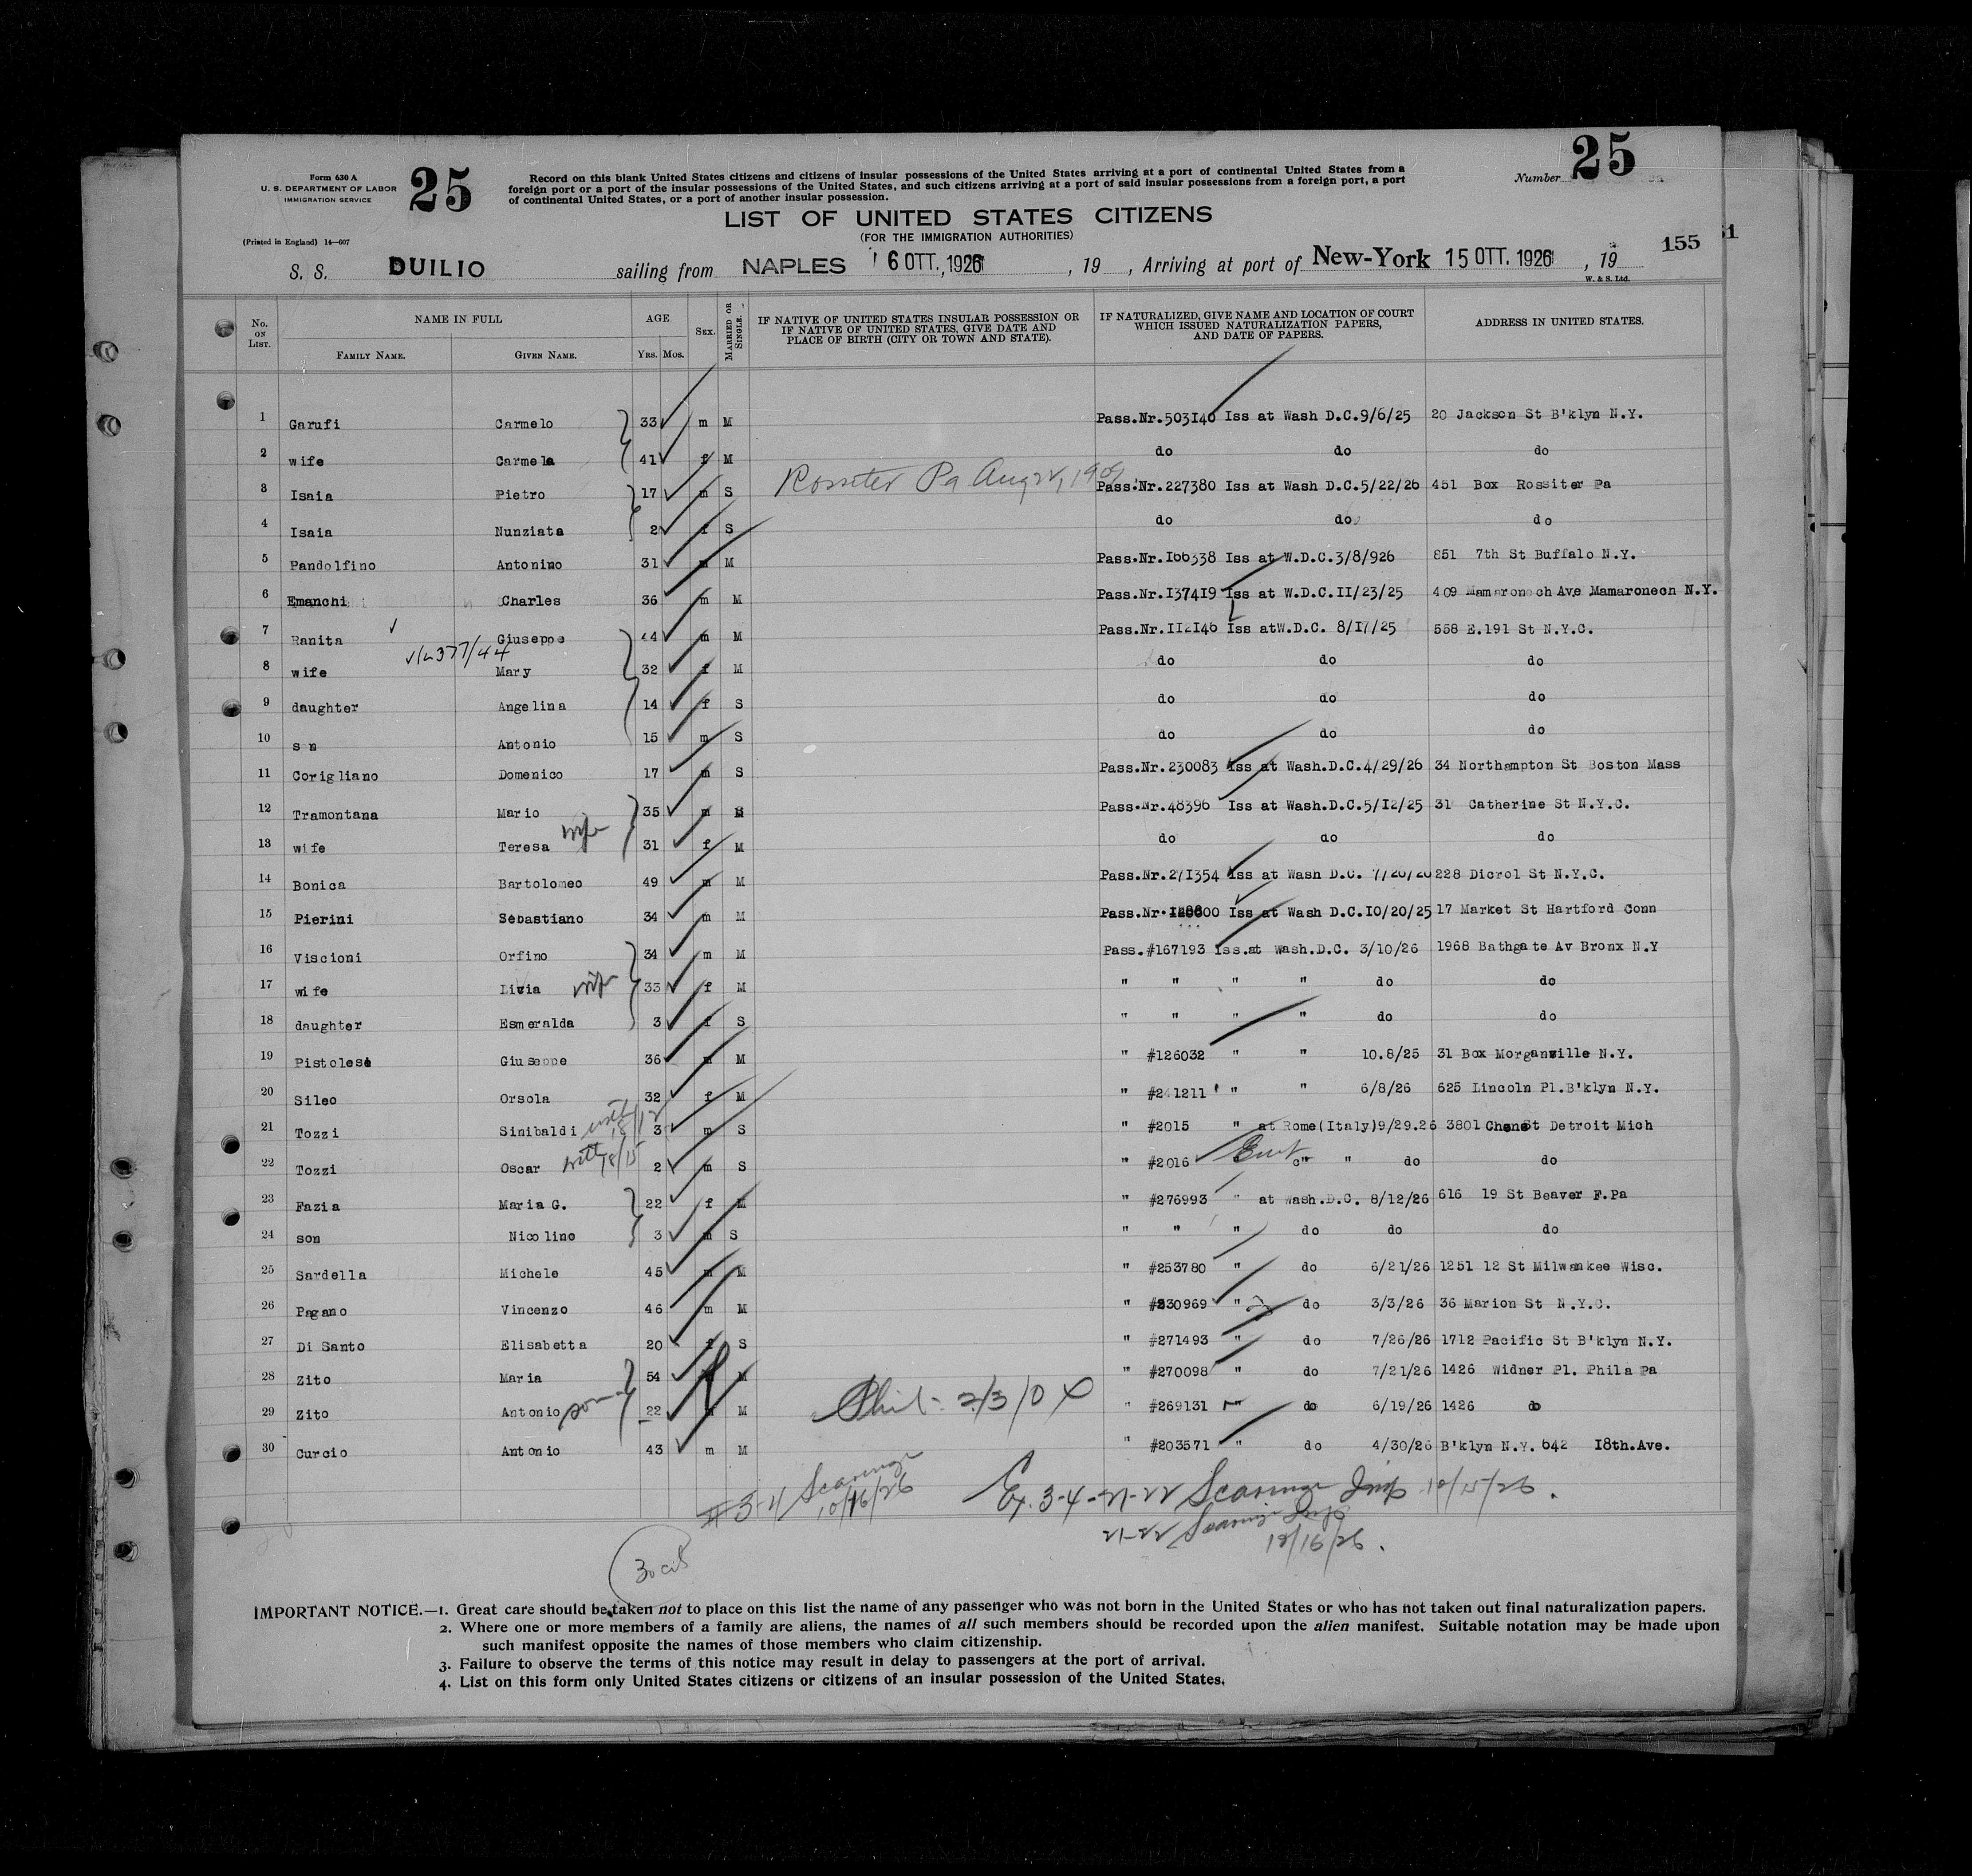 Form 630 A
U. S. DEPARTMENT OF LABOR
IMMIGRATION SERVICE
25
Record on this blank United States citizens and citizens of insular possessions of the United States arriving at a port of continental United States from a
foreign port or a port of the insular possessions of the United States, and such citizens arriving at a port of said insular possessions from a foreign port, a port
of continental United States, or a port of another insular possession.
Number 25
LIST OF UNITED STATES CITIZENS
(Printed in England) 14—607
(FOR THE IMMIGRATION AUTHORITIES)
155
S. S. DUILIO sailing from NAPLES 6 OTT. 1926 , 19 , Arriving at port of New-York 15 OTT. 1926 , 19
W. & S. Ltd.
No. ON LIST. NAME IN FULL AGE SEX. MARRIED OR SINGLE. IF NATIVE OF UNITED STATES INSULAR POSSESSION OR IF NATIVE OF UNITED STATES, GIVE DATE AND PLACE OF BIRTH (CITY OR TOWN AND STATE). IF NATURALIZED, GIVE NAME AND LOCATION OF COURT WHICH ISSUED NATURALIZATION PAPERS, AND DATE OF PAPERS. ADDRESS IN UNITED STATES.
FAMILY NAME. GIVEN NAME. YRS. MOS.
1 Garufi Carmelo 33 m M Pass.Nr.503140 Iss at Wash D.C.9/6/25 20 Jackson St B'klyn N.Y.
2 wife Carmela 41 f M do do do
3 Isaia Pietro 17 m S Rossiter Pa Aug Pass.Nr.227380 Iss at Wash D.C.5/22/26 451 Box Rossiter Pa
4 Isaia Nunziata 2 f S do do do
5 Pandolfino Antonino 31 m M Pass.Nr.166338 Iss at W.D.C.3/8/926 851 7th St Buffalo N.Y.
6 Emanchi Charles 36 m M Pass.Nr.137419 Iss at W.D.C.II/23/25 409 Mamaronech Ave Mamaronech N.Y.
7 Ranita Giuseppe 44 m M Pass.Nr.112146 Iss atW.D.C. 8/17/25 558 E.191 St N.Y.C.
8 wife Mary 32 f M do do do
9 daughter Angelina 14 f S do do do
10 s n Antonio 15 m S do do do
11 Corigliano Domenico 17 m S Pass.Nr.230083 Iss at Wash.D.C.4/29/26 34 Northampton St Boston Mass
12 Tramontana Mario 35 m Pass.Nr.48396 Iss at Wash.D.C.5/12/25 31 Catherine St N.Y.C.
13 wife Teresa wife 31 f M do do do
14 Bonica Bartolomeo 49 m M Pass.Nr.271354 Iss at Wash D.C. 7/20/26 228 Dicrol St N.Y.C.
15 Pierini Sebastiano 34 m M Pass.Nr. Iss at Wash D.C.IO/20/25 17 Market St Hartford Conn
16 Viscioni Orfino 34 m M Pass.#167193 Iss.at Wash.D.C. 3/10/26 1968 Bathgate Av Bronx N.Y
17 wife Livia wife 33 f M " " " " do do
18 daughter Esmeralda 3 f S " " " " do do
19 Pistolese Giuseppe 36 m M " #126032 " " 10.8/25 31 Box Morganville N.Y.
20 Sileo Orsola 32 f M " #241211 " " 6/8/26 625 Lincoln Pl.B'klyn N.Y.
21 Tozzi Sinibaldi with 18/12 3 m S " #2015 " at Rome(Italy)9/29.26 3801 Chene St Detroit Mich
22 Tozzi Oscar with 18/15 2 m S " #2016 " " do do
23 Fazia Maria G. 22 f M " #276993 " at Wash.D.C. 8/12/26 616 19 St Beaver F.Pa
24 son Nicolino 3 m S " " " do do do
25 Sardella Michele 45 m M " #253780 " do 6/21/26 1251 12 St Milwankee Wisc.
26 Pagano Vincenzo 46 m M " #230969 " do 3/3/26 36 Marion St N.Y.C.
27 Di Santo Elisabetta 20 f S " #271493 " do 7/26/26 1712 Pacific St B'klyn N.Y.
28 Zito Maria 54 M " #270098 " do 7/21/26 1426 Widner Pl. Phila Pa
29 Zito Antonio son 22 M " #269131 " do 6/19/26 1426 do
30 Curcio Antonio 43 m M " #203571 " do 4/30/26 B'klyn N.Y. 642 18th.Ave.
# 3-4 10/16/26
Ex. 3-4-21-22 Insp 10/15/26.
21-22 Insp
10/16/26.
IMPORTANT NOTICE.—1. Great care should be taken not to place on this list the name of any passenger who was not born in the United States or who has not taken out final naturalization papers.
2. Where one or more members of a family are aliens, the names of all such members should be recorded upon the alien manifest. Suitable notation may be made upon
such manifest opposite the names of those members who claim citizenship.
3. Failure to observe the terms of this notice may result in delay to passengers at the port of arrival.
4. List on this form only United States citizens or citizens of an insular possession of the United States.